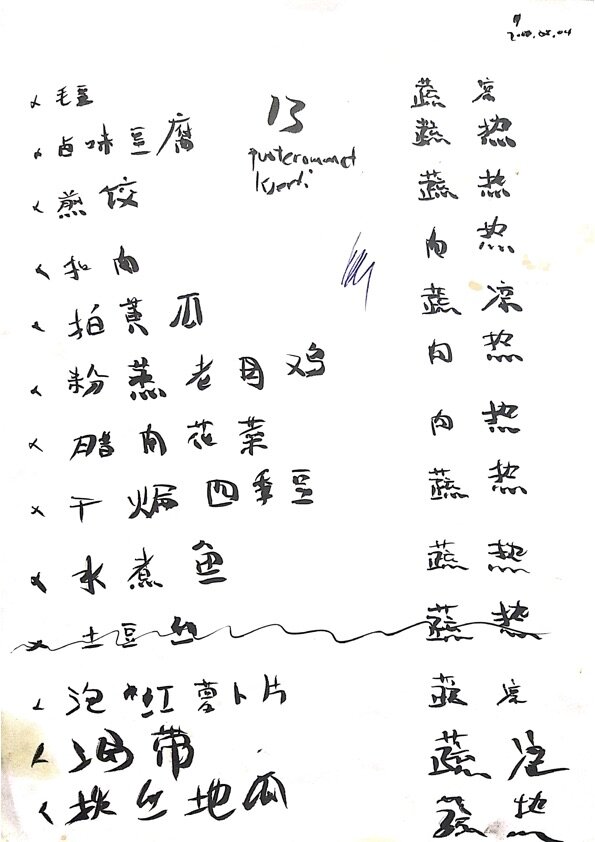 毛豆 蔬 凉
卤味豆腐 蔬 热
13
煎饺 蔬 热
扣肉 肉 热
拍黄瓜 蔬 凉
粉蒸老母鸡 肉 热
腊肉花菜 肉 热
干煸四季豆 蔬 热
水煮鱼 蔬 热
土豆丝 蔬 热
泡 红萝卜片 蔬 凉
海带 蔬
丝地瓜 热